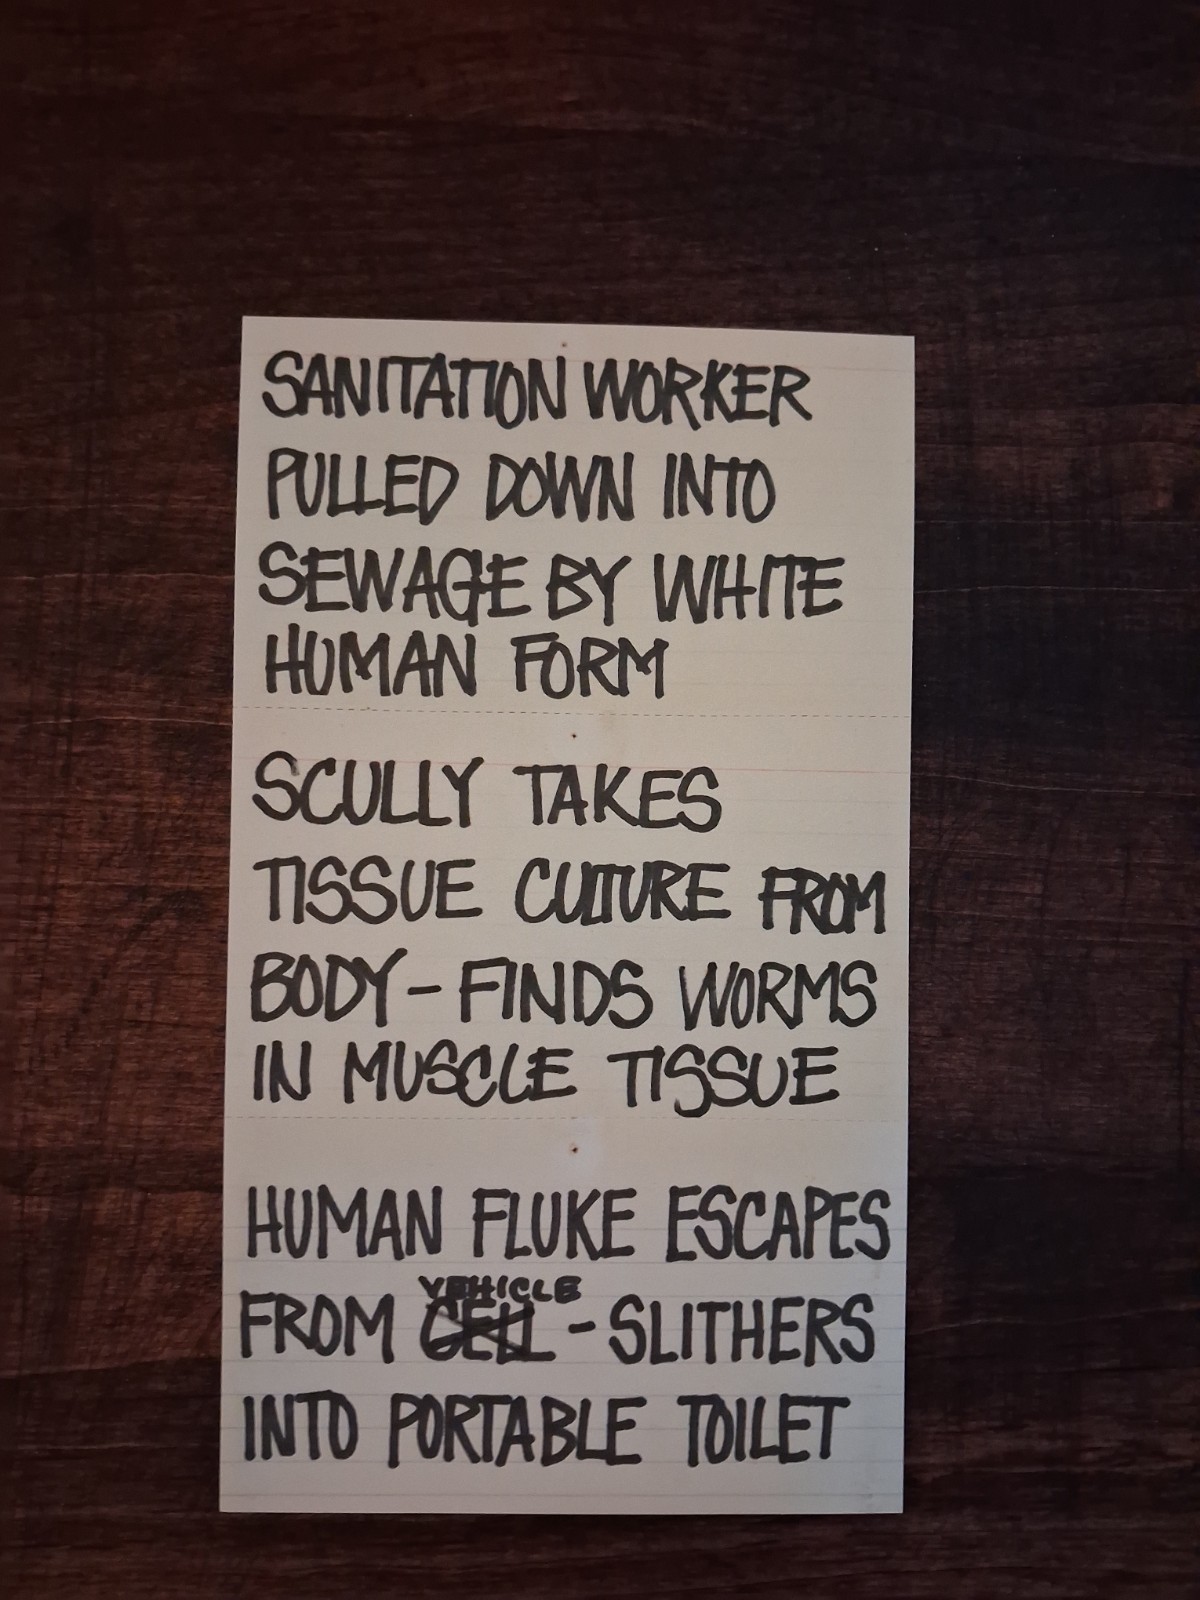 SANITATION WORKER
PULLED DOWN INTO
SEWAGE BY WHITE
HUMAN FORM
SCULLY TAKES
TISSUE CULTURE FROM
BODY - FINDS WORMS
IN MUSCLE TISSUE
HUMAN FLUKE ESCAPES
VEHICLE
FROM CELL - SLITHERS
INTO PORTABLE TOILET